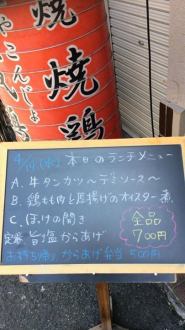 焼
焼
鶏
やきとり
4/14(水) 本日のランチメニュー
A. 牛タンカツ〜デミソース〜
B. 鶏もも肉と厚揚げのオイスター煮
C. ほっけの開き
定番 旨塩からあげ
全品
700円
お持ち帰り からあげ弁当 500円